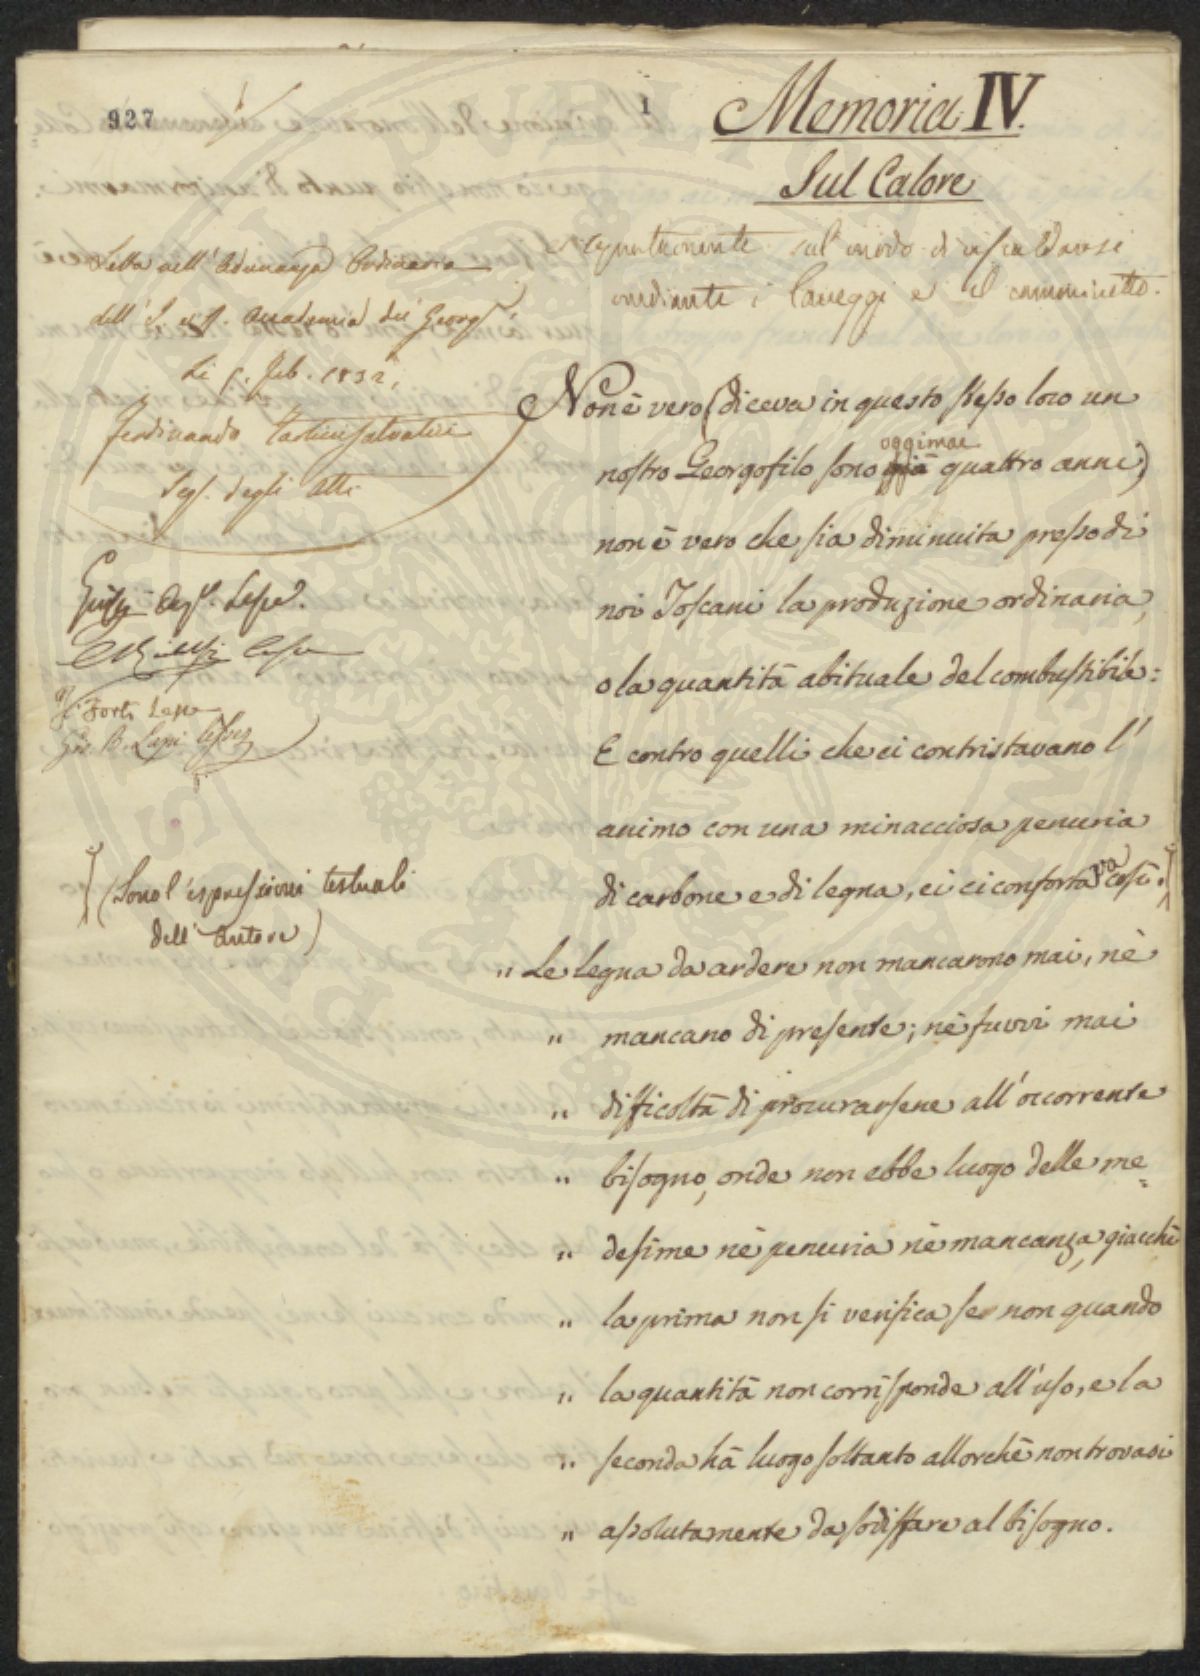 927
1
Memoria IV.
Sul Calore
segnatamente sul modo di riscaldarsi
mediante i laveggi e il camminetto.
Letta nell'Adunanza Ordinaria
dell'I. e R. Accademia dei Georgf
Li 5. Feb. 1832,
Ferdinando Tartini Salvatici
Seg. degli Atti
(Sono l'espressioni testuali
dell'Autore)
Non è vero (diceva in questo stesso loco un
nostro Georgofilo sono già oggimai quattro anni)
non è vero che sia diminuita presso di
noi Toscani la produzione ordinaria,
o la quantità abituale del combustibile:
E contro quelli che ci contristavano l'
animo con una minacciosa penuria
di carbone e di legna, ei ci confortava così:
" Le legna da ardere non mancarono mai, nè
" mancano di presente; nè fuvvi mai
" difficoltà di procurarsene all'occorrente
" bisogno, onde non ebbe luogo delle me=
" desime nè penuria nè mancanza, giacchè
" la prima non si verifica se non quando
" la quantità non corrisponde all'uso, e la
" seconda hà luogo soltanto allorchè non trovasi
" assolutamente da sodisfare al bisogno.